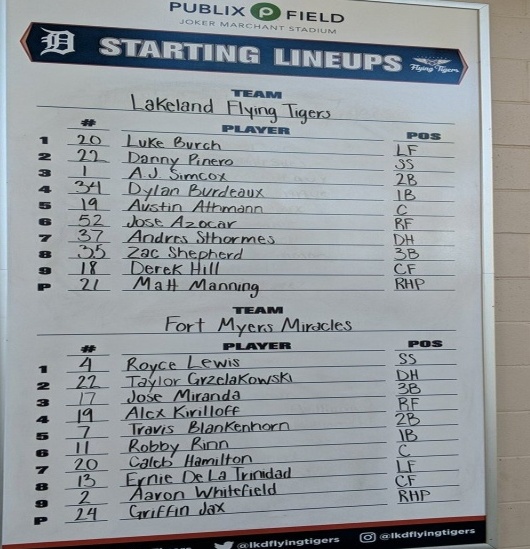 PUBLIX P FIELD
JOKER MARCHANT STADIUM
D STARTING LINEUPS Flying Tigers
TEAM
Lakeland Flying Tigers
# PLAYER POS
1 20 Luke Burch LF
2 22 Danny Pinero SS
3 1 A.J. Simcox 2B
4 34 Dylan Burdeaux 1B
5 19 Austin Athmann C
6 52 Jose Azocar RF
7 37 Andres Sthormes DH
8 35 Zac Shepherd 3B
9 18 Derek Hill CF
P 21 Matt Manning RHP
TEAM
Fort Myers Miracles
# PLAYER POS
1 4 Royce Lewis SS
2 22 Taylor Grzelakowski DH
3 17 Jose Miranda 3B
4 19 Alex Kirilloff RF
5 7 Travis Blankenhorn 2B
6 11 Robby Rinn 1B
7 20 Caleb Hamilton C
8 13 Ernie De La Trinidad LF
9 2 Aaron Whitefield CF
P 24 Griffin Jax RHP
@lkdflyingtigers @lkdflyingtigers